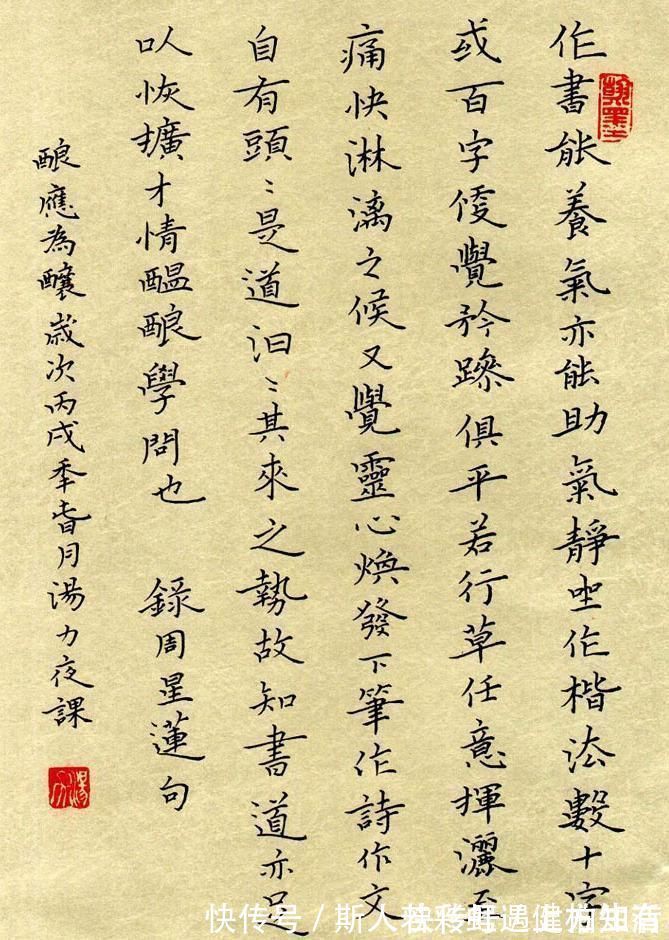 作書能養氣亦能助氣靜坐作楷法數十字
或百字便覺矜躁俱平若行草任意揮灑至
痛快淋漓之候又覺靈心煥發下筆作詩作文
自有頭〻是道汩〻其來之勢故知書道亦足
以恢擴才情醞酿學問也 錄周星蓮句
酿應為釀歲次丙戌年春月湯力夜課
翰墨
湯力
快传号 / 斯人